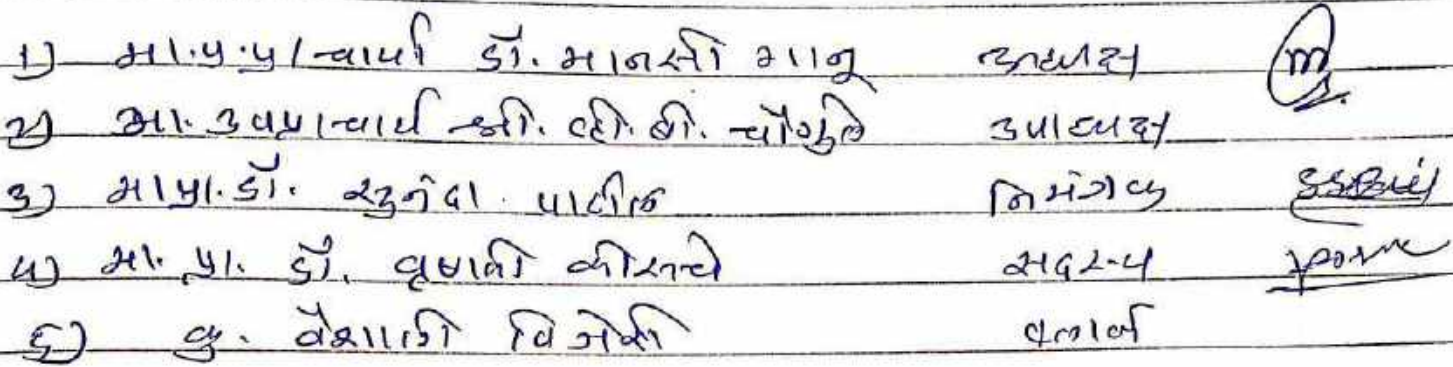 १) मा.प्र.प्राचार्या डॉ. मानसी गानू अध्यक्ष
२) मा. उपप्राचार्य श्री. व्ही. बी. चौगुले उपाध्यक्ष
३) मा.प्रा. डॉ. सुनंदा. पाटील निमंत्रक
५) मा. प्रा. डॉ. वृषाली सदस्य
६) कु. वैशाली क्लार्क